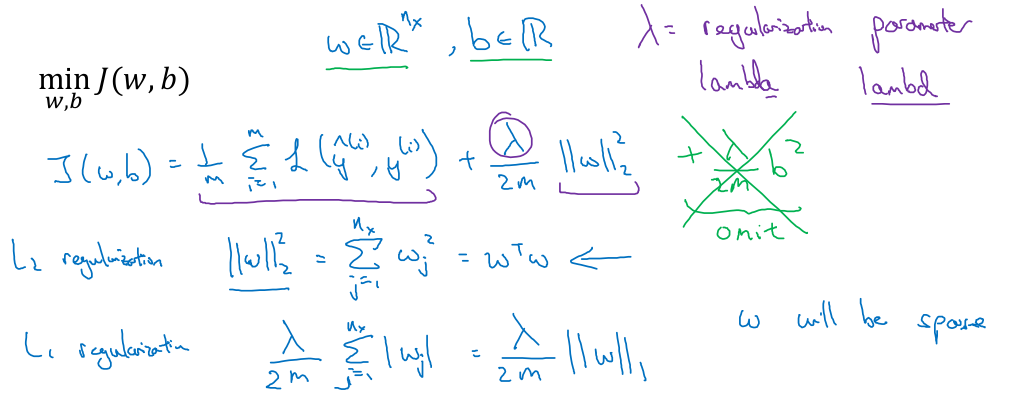 w ∈ ℝ^{n_x}, b ∈ ℝ
λ = regularization parameter
lambda lambd
min_{w,b} J(w, b)
J(w,b) = 1/m Σ_{i=1}^{m} L(ŷ^{(i)}, y^{(i)}) + λ/2m ||w||_2^2 + λ/2m b^2
omit
L_2 regularization ||w||_2^2 = Σ_{j=1}^{n_x} w_j^2 = w^T w ←
w will be sparse
L_1 regularization λ/2m Σ_{j=1}^{n_x} |w_j| = λ/2m ||w||_1